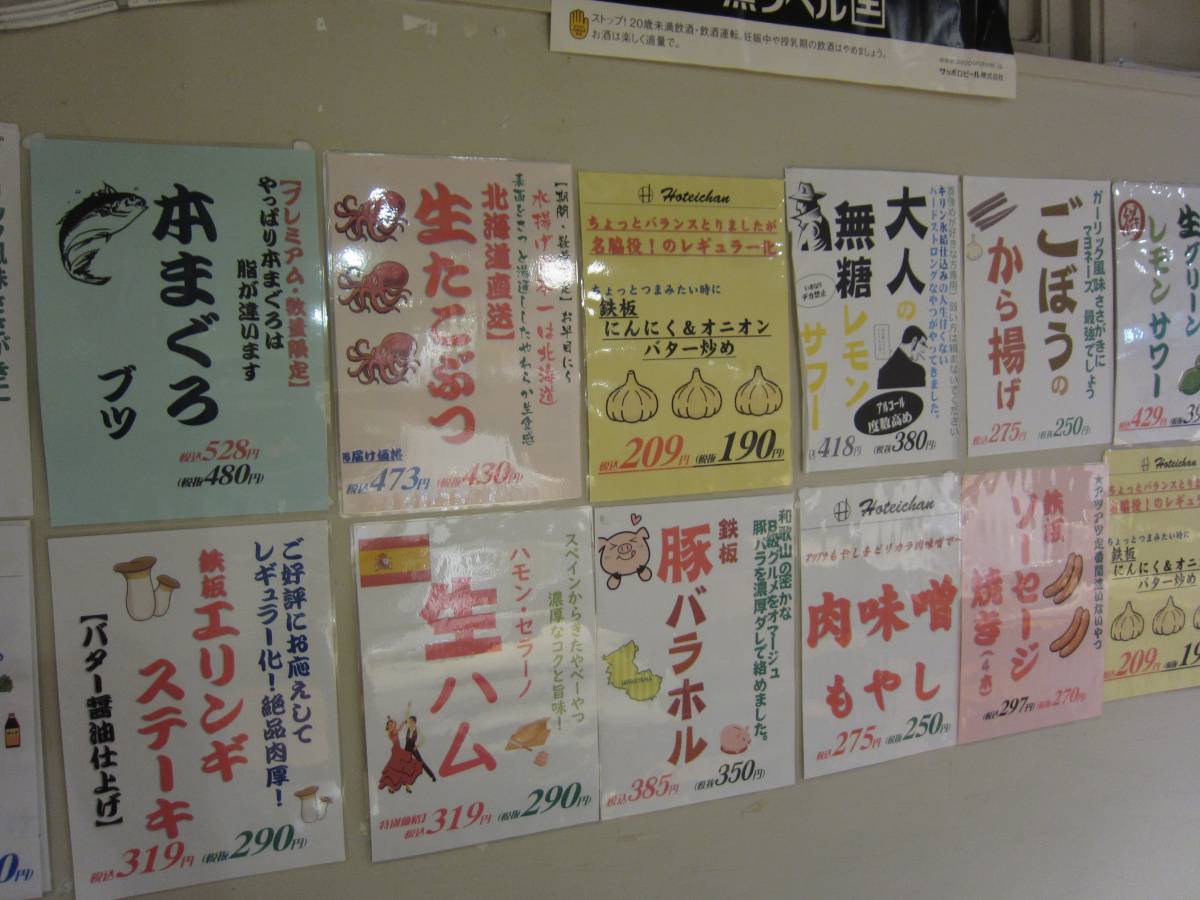 黒ラベル 生
ストップ!20歳未満飲酒・飲酒運転。妊娠中や授乳期の飲酒はやめましょう。
お酒は楽しく適量で。
サッポロビール株式会社
【プレミアム・数量限定】
やっぱり本まぐろは
脂が違います
本まぐろ
ブツ
税込528円
(税抜480円)
お早目に
水揚げ
一は北海道
表面をさっと湯通ししたやわらか生食感
北海道直送】
生たこぶつ
お届け価格
税込473円 (税抜430円)
Hoteichan
ちょっとバランスとりましたが
名脇役!のレギュラー化
ちょっとつまみたい時に
鉄板
にんにく&オニオン
バター炒め
税込209円 (税抜190円)
キリン氷結仕込みの人生甘くない
ハードストロングなやつがやってきました。
大人の
無糖レモン
サワー
いきなり
デカ禁止
アルコール
度数高め
込418円 (税抜380円)
ガーリック風味ささがきに
マヨネーズ 最強でしょう
ごぼうの
から揚げ
税込275円 (税抜250円)
生グリーン
レモンサワー
税込429円
ご好評にお応えして
レギュラー化!絶品肉厚!
鉄板エリンギ
ステーキ
【バター醤油仕上げ】
税込319円 (税抜290円)
スペインからきたやべーやつ
濃厚なコクと旨味!
ハモン・セラーノ
生ハム
特別価格】
税込319円 (税抜290円)
和歌山の密かな
B級グルメをオマージュ
豚バラを濃厚ダレで絡めました。
鉄板
豚バラホル
税込385円 (税抜350円)
Hoteichan
もやしをピリカラ肉味噌で
肉味噌
もやし
税込275円 (税抜250円)
★アツアツ定番間違いないやつ
鉄板
ソーセージ
焼き(4本)
(税込297円 (税抜270円)
Hoteichan
ちょっとバランスとりま
名脇役!のレギュ
ちょっとつまみたい時に
鉄板
にんにく&オニ
バター炒め
税込209円 (税抜19